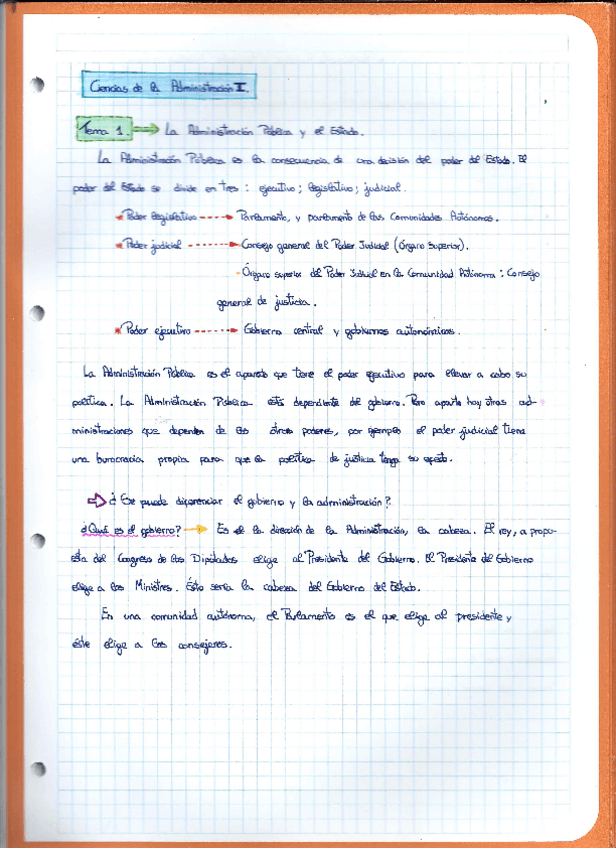 Ciencias de la Administración I.
Tema 1. La Administración Pública y el Estado.
La Administración Pública es la consecuencia de una decisión del poder del Estado. El
poder del Estado se divide en tres: ejecutivo; legislativo; judicial.
* Poder legislativo ----> Parlamento, y parlamento de las Comunidades Autónomas.
* Poder judicial ----> Consejo general del Poder Judicial (Órgano Superior).
- Órgano superior del Poder Judicial en la Comunidad Autónoma: Consejo
general de justicia.
* Poder ejecutivo ----> Gobierno central y gobiernos autonómicos.
La Administración Pública es el aparato que tiene el poder ejecutivo para llevar a cabo su
política. La Administración Pública está dependiente del gobierno. Pero aparte hay otras ad-
ministraciones que dependen de los otros poderes, por ejemplo el poder judicial tiene
una burocracia propia para que la política de justicia tenga su efecto.
¿Se puede diferenciar el gobierno y la administración?
¿Qué es el gobierno? → Es el la dirección de la Administración, la cabeza. El rey, a propu-
esta del Congreso de los Diputados elige al Presidente del Gobierno. El Presidente del Gobierno
elige a los Ministros. Ésto sería la cabeza del Gobierno del Estado.
En una comunidad autónoma, el Parlamento es el que elige al presidente y
éste elige a los consejeros.